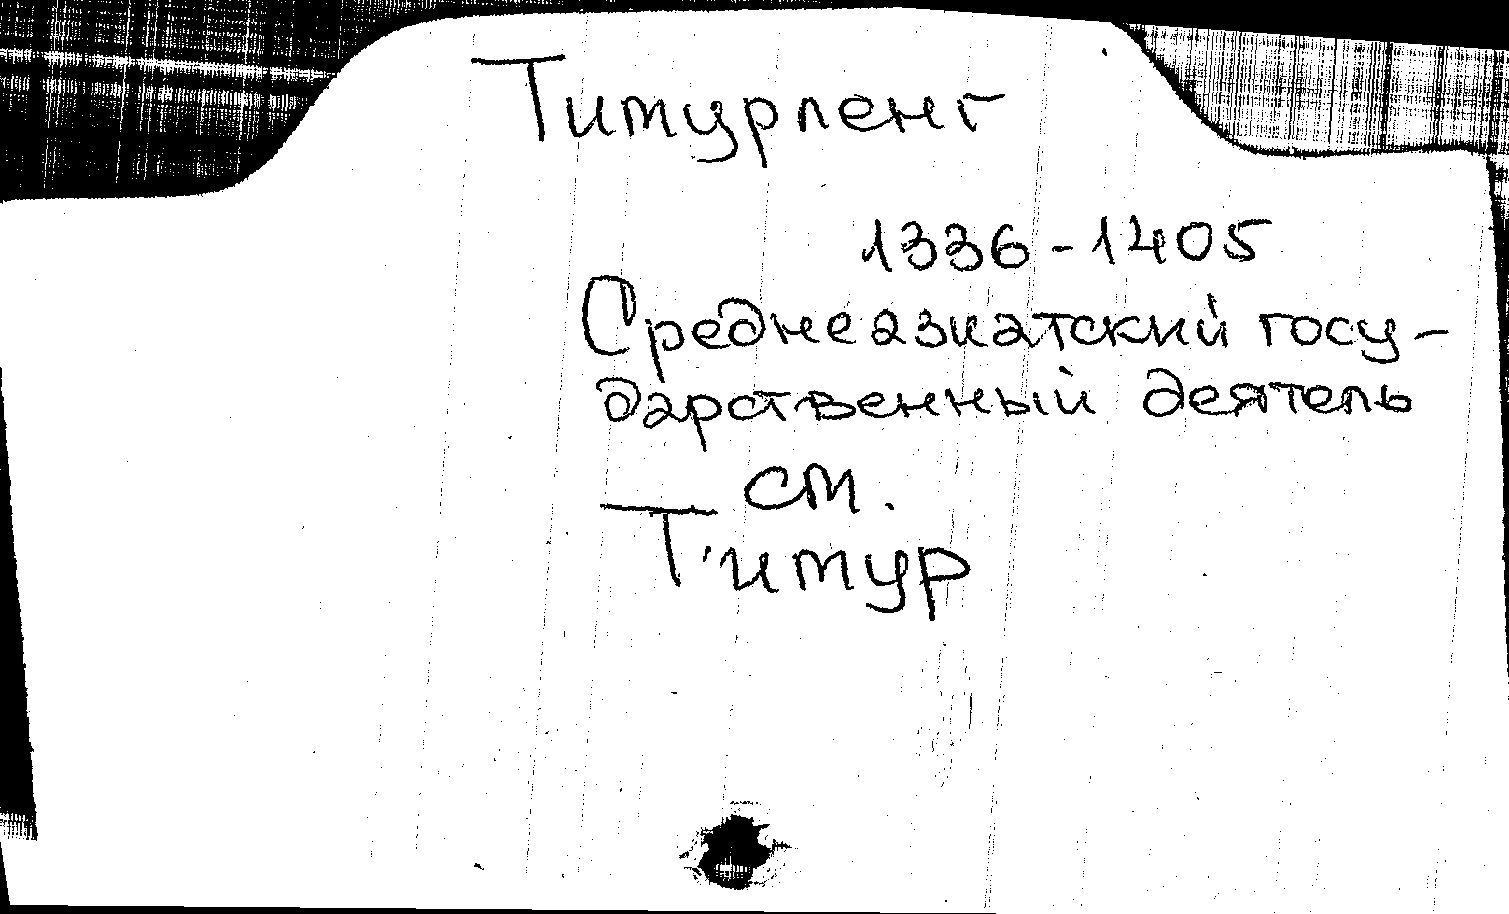 Тимурленг
1336-1405
Среднеазиатский госу-
дарственный деятель
см.
Тимур